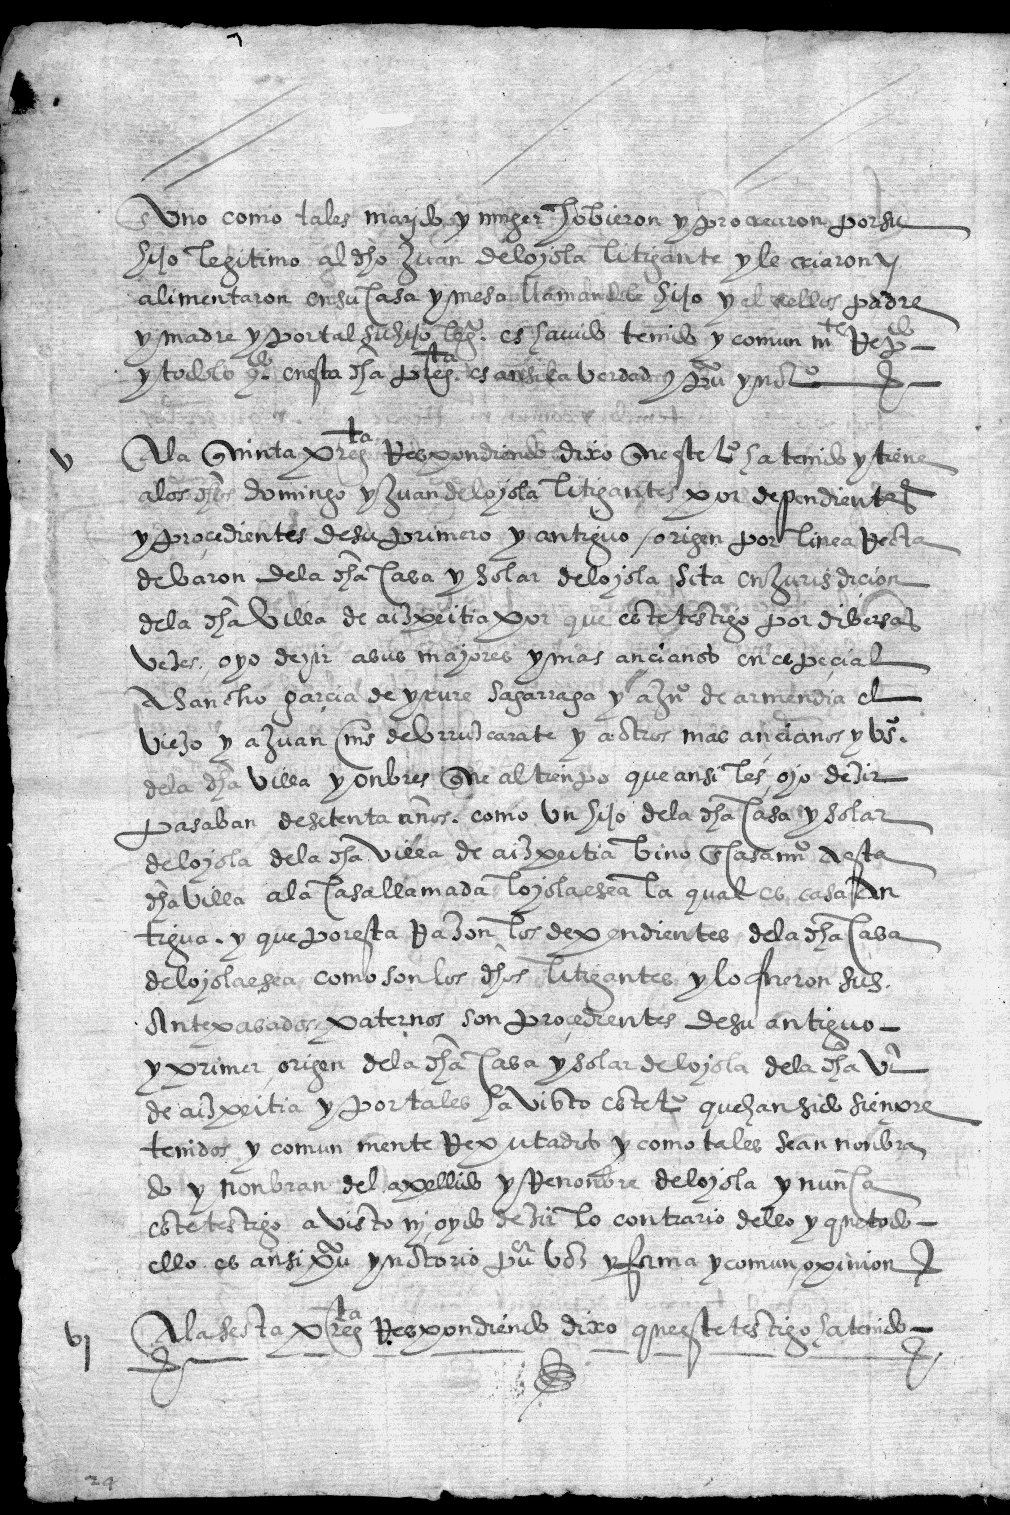 Uno como tales marydo y muger hobieron y procrearon por su
hijo legitimo al dho Juan de loyola litigante y le criaron y
alimentaron en su casa y mesa llamandole hijo y el a ellos padre
y madre y por tal su hijo legmo. es havido tenido y comun mte Repdo
y todo lo qdo. en esta dha pregta. es ansi la verdad y puco y notº
V A la quinta pregta Respondiendo dixo que este tº ha tenido y tiene
a los dhos domingo y Juan de loyola litigantes por dependientes
y procedientes de su primero y antiguo origen por linea Recta
de baron de la dha casa y solar de loyola sita en Jurisdicion
de la dha Villa de aizpeitia por que este testigo por diversas
vezes oyo dezir a sus mayores y mas ancianos en especial
A Sancho garcia de ycure sagarraga y a Jnº de armendia el
viejo y a Juan mns de Urruzcarate y a otros mas ancianos y vsº.
de la dha villa y onbres que al tienpo que ansi les oyo dezir
pasaban de setenta años. como Un hijo de la dha casa y solar
de loyola de la dha villa de aizpeitia vino e casamº a esta
dha villa a la casa llamada loyolaesea la qual es casa an
tigua. y que por esta Razon los dependientes de la dha casa
de loyolaesea como son los dhos litigantes y lo fueron sus
Antepasados paternos son procedientes de su antiguo
y primer origen de la dha casa y solar de loyola de la dha vª
de aizpeitia y por tales ha visto este tº que han sido sienpre
tenidos y comun mente Reputados y como tales se an nonbra
do y nonbran del apellido y Renonbre de loyola y nunca
este testigo a visto ny oydo dezir lo contrario dello y que todo
ello es ansi puco y notorio puca voz y fama y comun opinion
Vj A la sesta pregta Respondiendo dixo que este testigo ha tenido
24